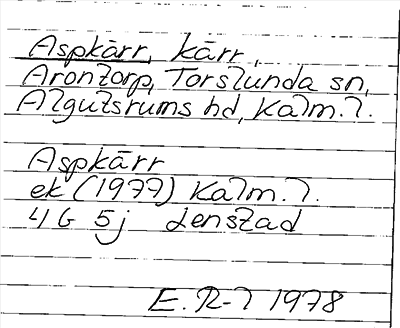 Aspkärr, kärr,
Arontorp, Torslunda sn,
Algutsrums hd, Kalm. l.
Aspkärr
ek (1977) Kalm. l.
4 G 5j Lenstad
E. R-l 1978